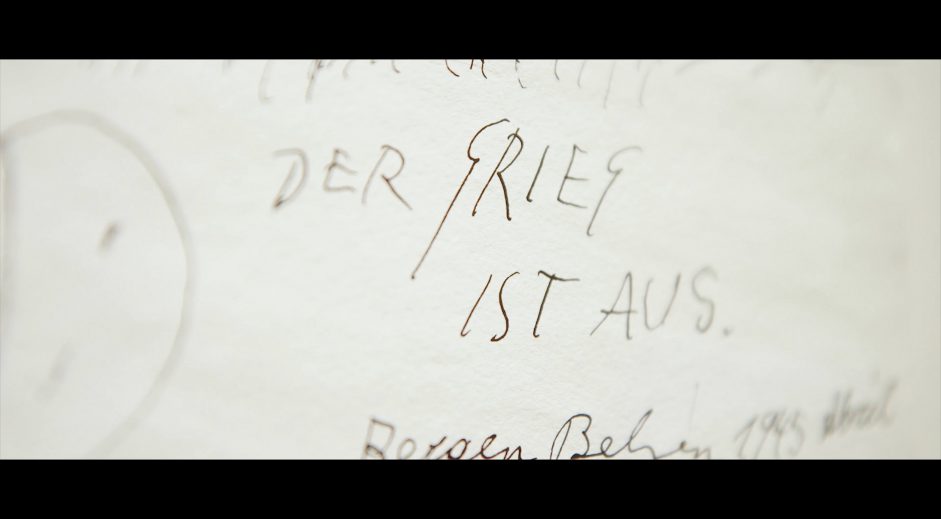 DER GRIEG
IST AUS.
Bergen Belsen 1945